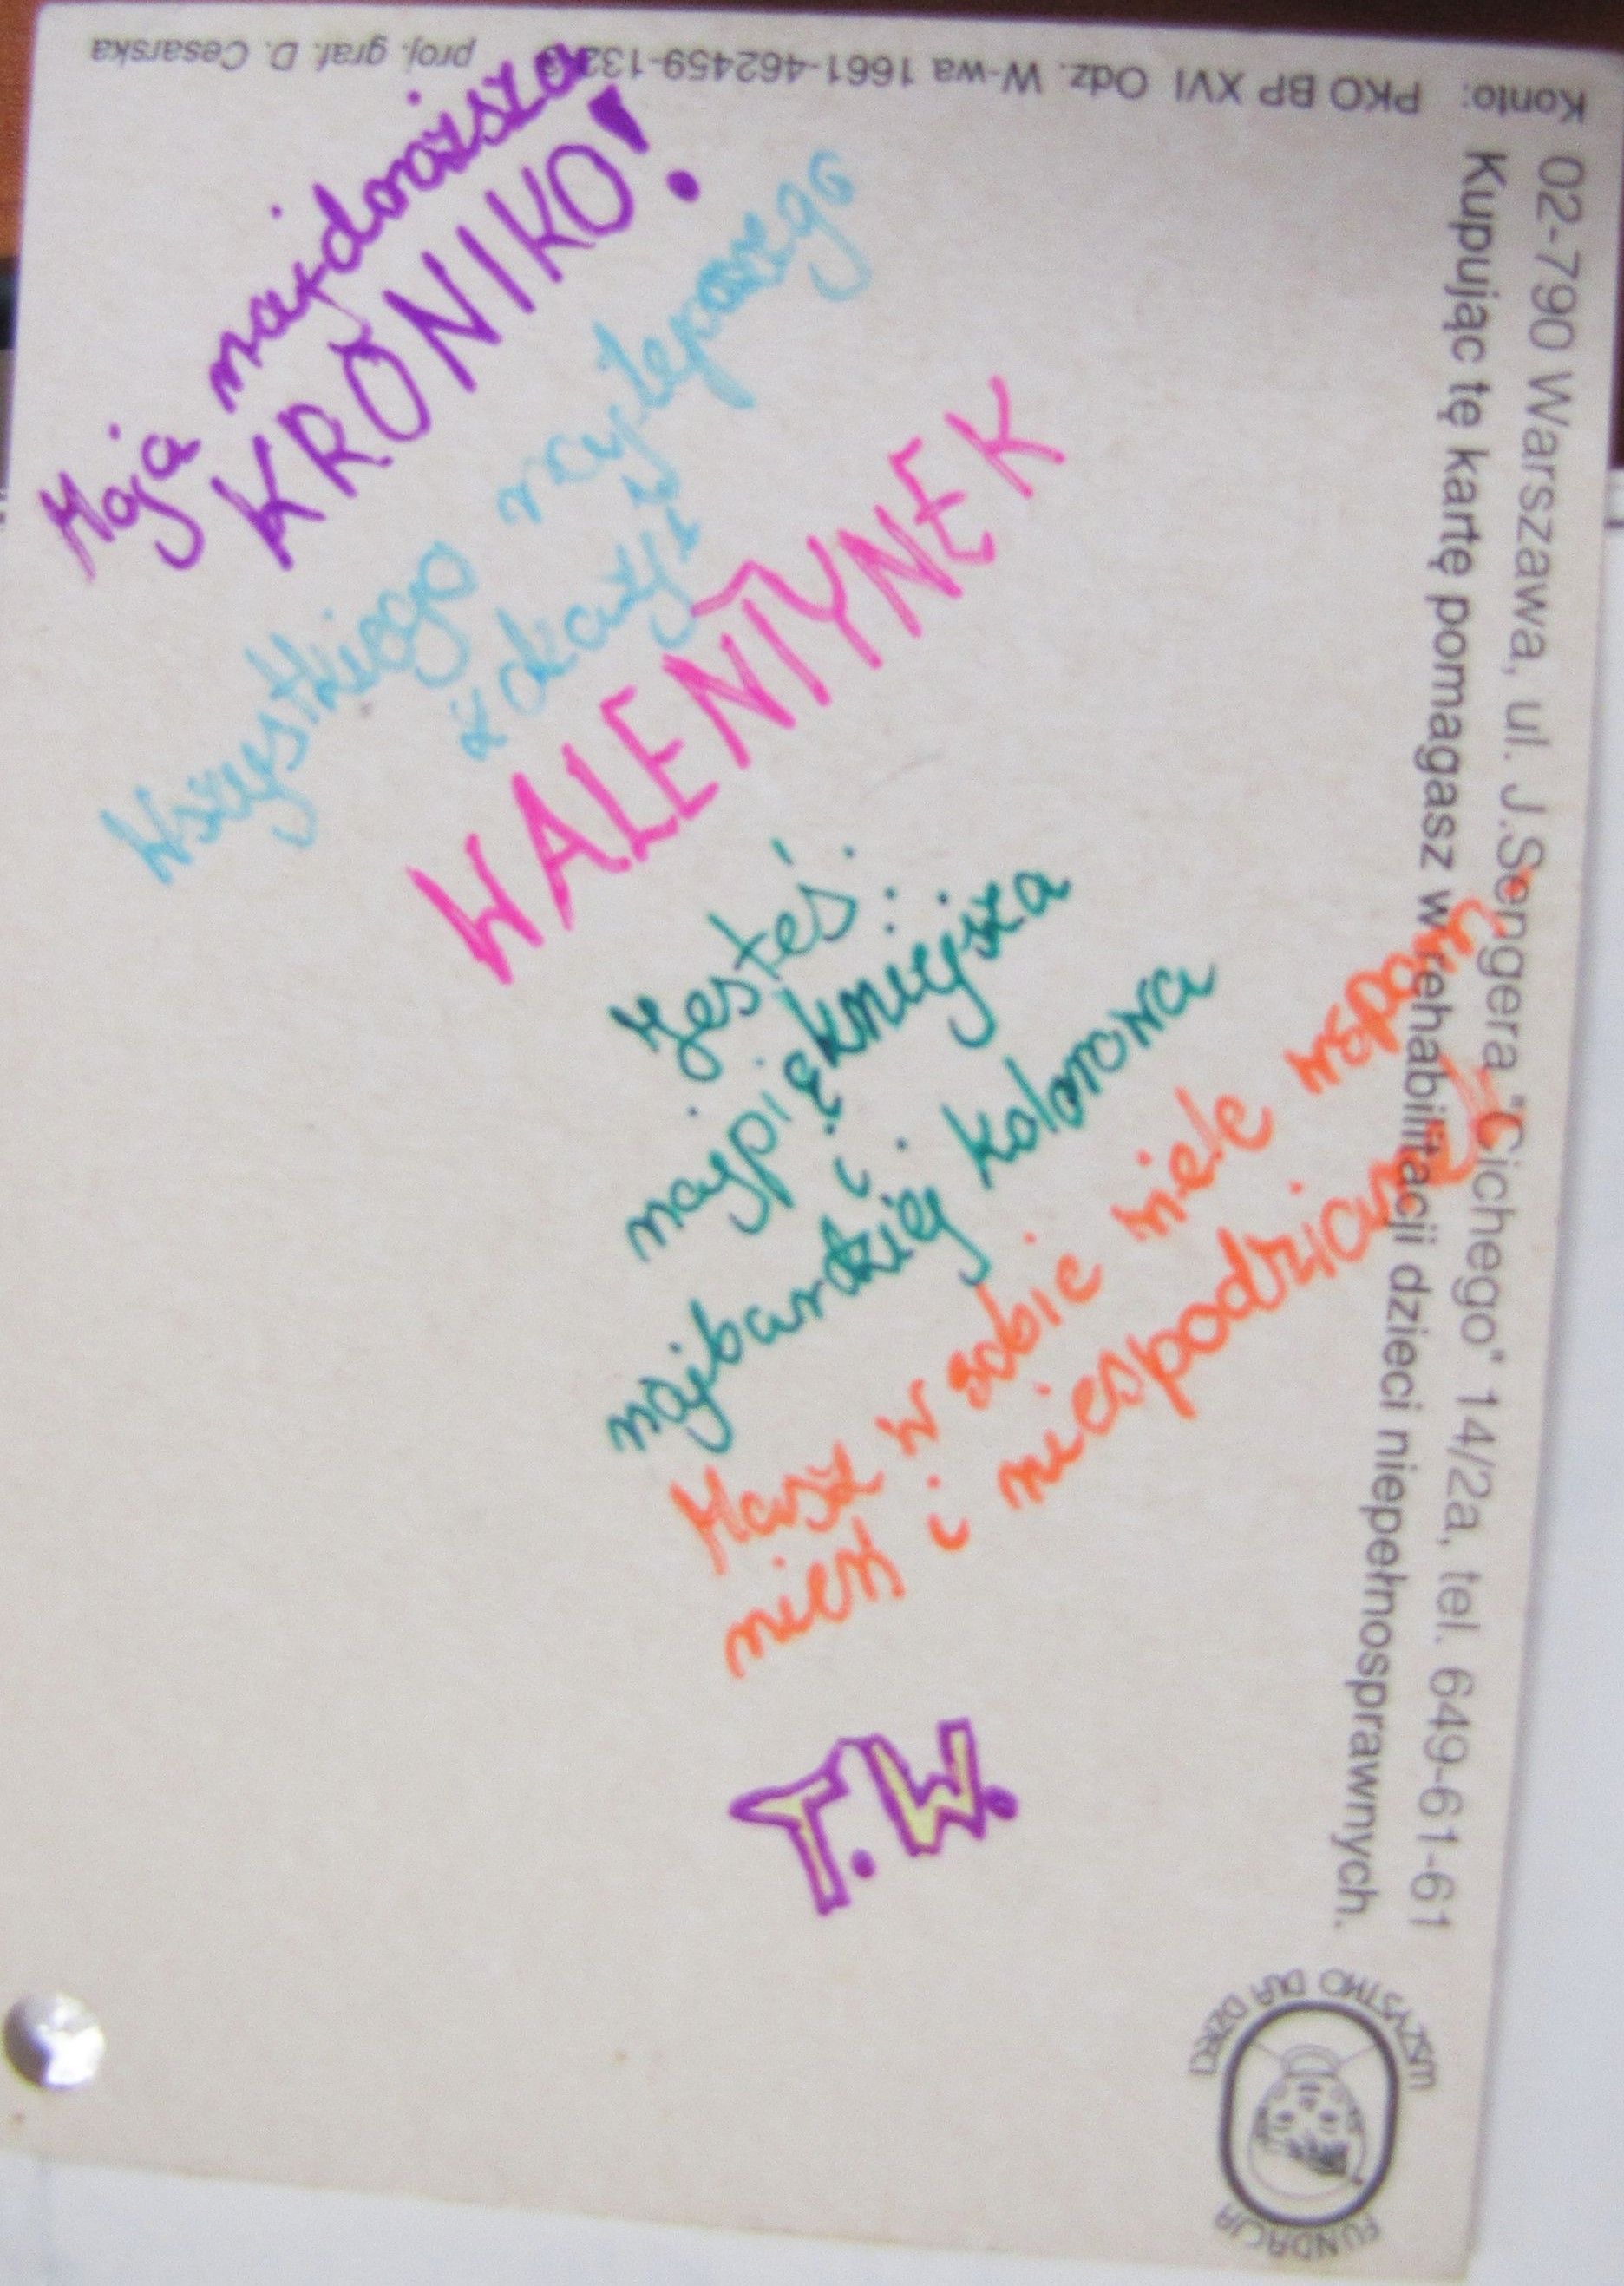 Moja najdroższa
KRONIKO!
Wszystkiego najlepszego
z okazji
WALENTYNEK
Jesteś:
najpiękniejsza
i
najbardziej kolorowa
Masz w sobie wiele wspom
nień i niespodzianek
T.W.
02-790 Warszawa, ul. J.Sengera "Cichego" 14/2a, tel. 649-61-61
Kupując tę kartę pomagasz w rehabilitacji dzieci niepełnosprawnych.
Konto: PKO BP XVI Odz. W-wa 1661-462459-132
proj. graf. D. Cesarska
FUNDACJA
WSZYSTKO DLA DZIECI